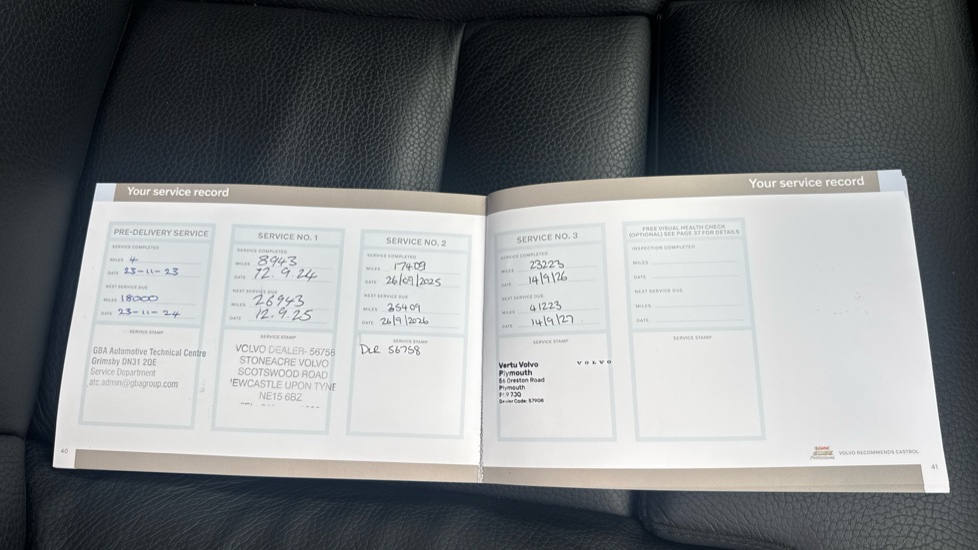 Your service record
PRE-DELIVERY SERVICE
SERVICE COMPLETED
MILES 4
DATE 23-11-23
NEXT SERVICE DUE
MILES 18000
DATE 23-11-24
SERVICE STAMP
GBA Automotive Technical Centre
Grimsby DN31 2QE
Service Department
atc.admin@gbagroup.com
SERVICE NO. 1
SERVICE COMPLETED
MILES 8943
DATE 12.9.24
NEXT SERVICE DUE
MILES 26943
DATE 12.9.25
SERVICE STAMP
VOLVO DEALER- 56758
STONEACRE VOLVO
SCOTSWOOD ROAD
EWCASTLE UPON TYNE
NE15 6BZ
SERVICE NO. 2
SERVICE COMPLETED
MILES 17409
DATE 26/09/2025
NEXT SERVICE DUE
MILES 35409
DATE 26/9/2026
SERVICE STAMP
DLR 56758
40
Your service record
SERVICE NO. 3
SERVICE COMPLETED
MILES 23223
DATE 14/9/26
NEXT SERVICE DUE
MILES 41223
DATE 14/9/27
SERVICE STAMP
Vertu Volvo
VOLVO
Plymouth
Oreston Road
Plymouth
7JQ
Dealer Code: 57908
FREE VISUAL HEALTH CHECK
(OPTIONAL) SEE PAGE 37 FOR DETAILS
INSPECTION COMPLETED
MILES
DATE
NEXT SERVICE DUE
MILES
DATE
SERVICE STAMP
VOLVO RECOMMENDS CASTROL
41